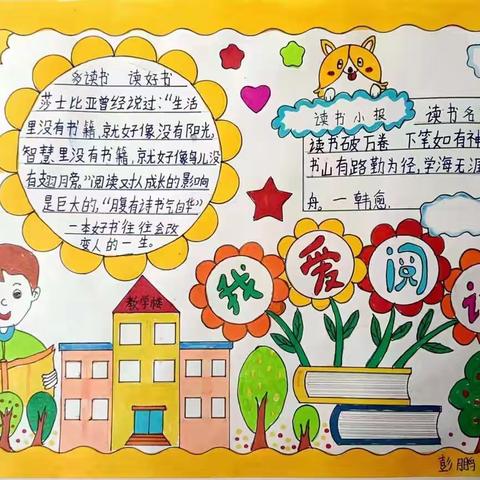 多读书 读好书
莎士比亚曾经说过:“生活
里没有书籍,就好像没有阳光,
智慧里没有书籍,就好像鸟儿没
有翅膀。”阅读对人成长的影响
是巨大的,“腹有诗书气自华”
一本好书往往会改
变人的一生。
读书小报
读书名
读书破万卷 下笔如有神
书山有路勤为径,学海无涯
舟。—韩愈.
我爱阅
教学楼
彭鹏